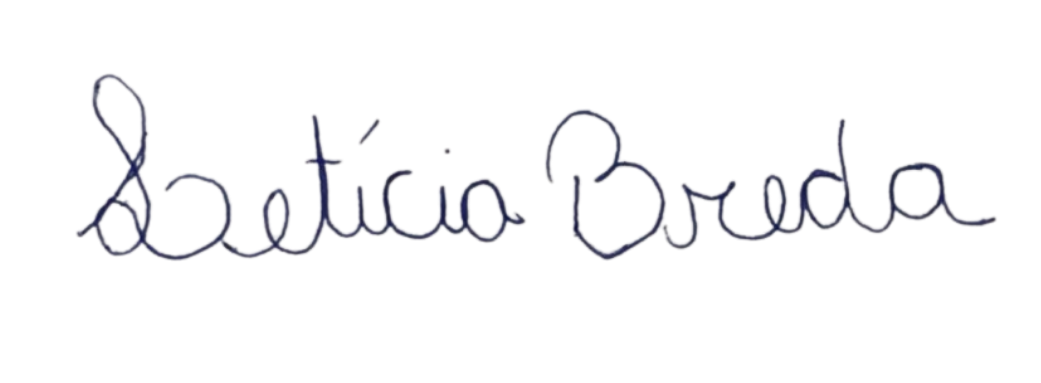 Letícia Breda